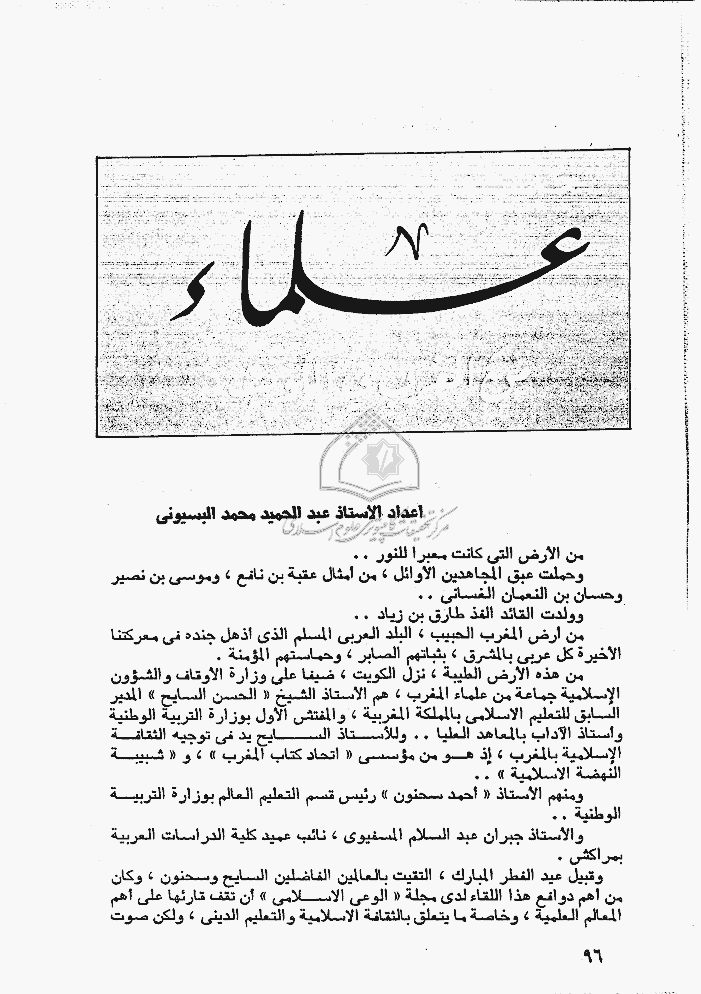 علماء
اعداد الاستاذ عبد الحميد محمد البسيونى
من الأرض التي كانت معبرا للنور . .
وحملت عبق المجاهدين الأوائل ، من أمثال عقبة بن نافع ، وموسى بن نصير
وحسان بن النعمان الغسانى . .
وولدت القائد الفذ طارق بن زياد . .
من أرض المغرب الحبيب ، البلد العربى المسلم الذى أذهل جنده فى معركتنا
الأخيرة كل عربى بالمشرق ، بثباتهم الصابر ، وحماستهم المؤمنة .
من هذه الأرض الطيبة ، نزل الكويت ، ضيفا على وزارة الأوقاف والشؤون
الإسلامية جماعة من علماء المغرب ، هم الأستاذ الشيخ « الحسن السايح » المدير
السابق للتعليم الاسلامى بالمملكة المغربية ، والمفتش الأول بوزارة التربية الوطنية
وأستاذ الآداب بالمعاهد العليا . . وللأستاذ السايح يد فى توجيه الثقافة
الإسلامية بالمغرب ، إذ هو من مؤسسى « اتحاد كتاب المغرب » ، و « شبيبة
النهضة الاسلامية » . .
ومنهم الأستاذ « أحمد سحنون » رئيس قسم التعليم العالم بوزارة التربية
الوطنية . .
والأستاذ جبران عبد السلام المسفيوى ، نائب عميد كلية الدراسات العربية
بمراكش .
وقبيل عيد الفطر المبارك ، التقيت بالعالمين الفاضلين السايح وسحنون ، وكان
من أهم دوافع هذا اللقاء لدى مجلة « الوعى الاسلامى » أن تقف قارئها على أهم
المعالم العلمية ، وخاصة ما يتعلق بالثقافة الاسلامية والتعليم الدينى ، ولكن صوت
٩٦